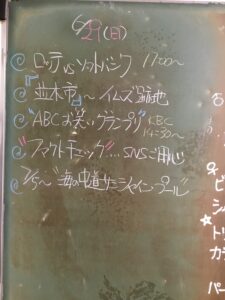 6/29(日)
@ ロッテvsソフトバンク 17:00〜
@『並木市』〜イムズ跡地
@"ABCお笑いグランプリ" KBC 14:30〜
@"ファクトチェック"…SNSご用心
@7/5〜"海の中道サンシャインプール"
ビ
シ
★ト
カラ
パー